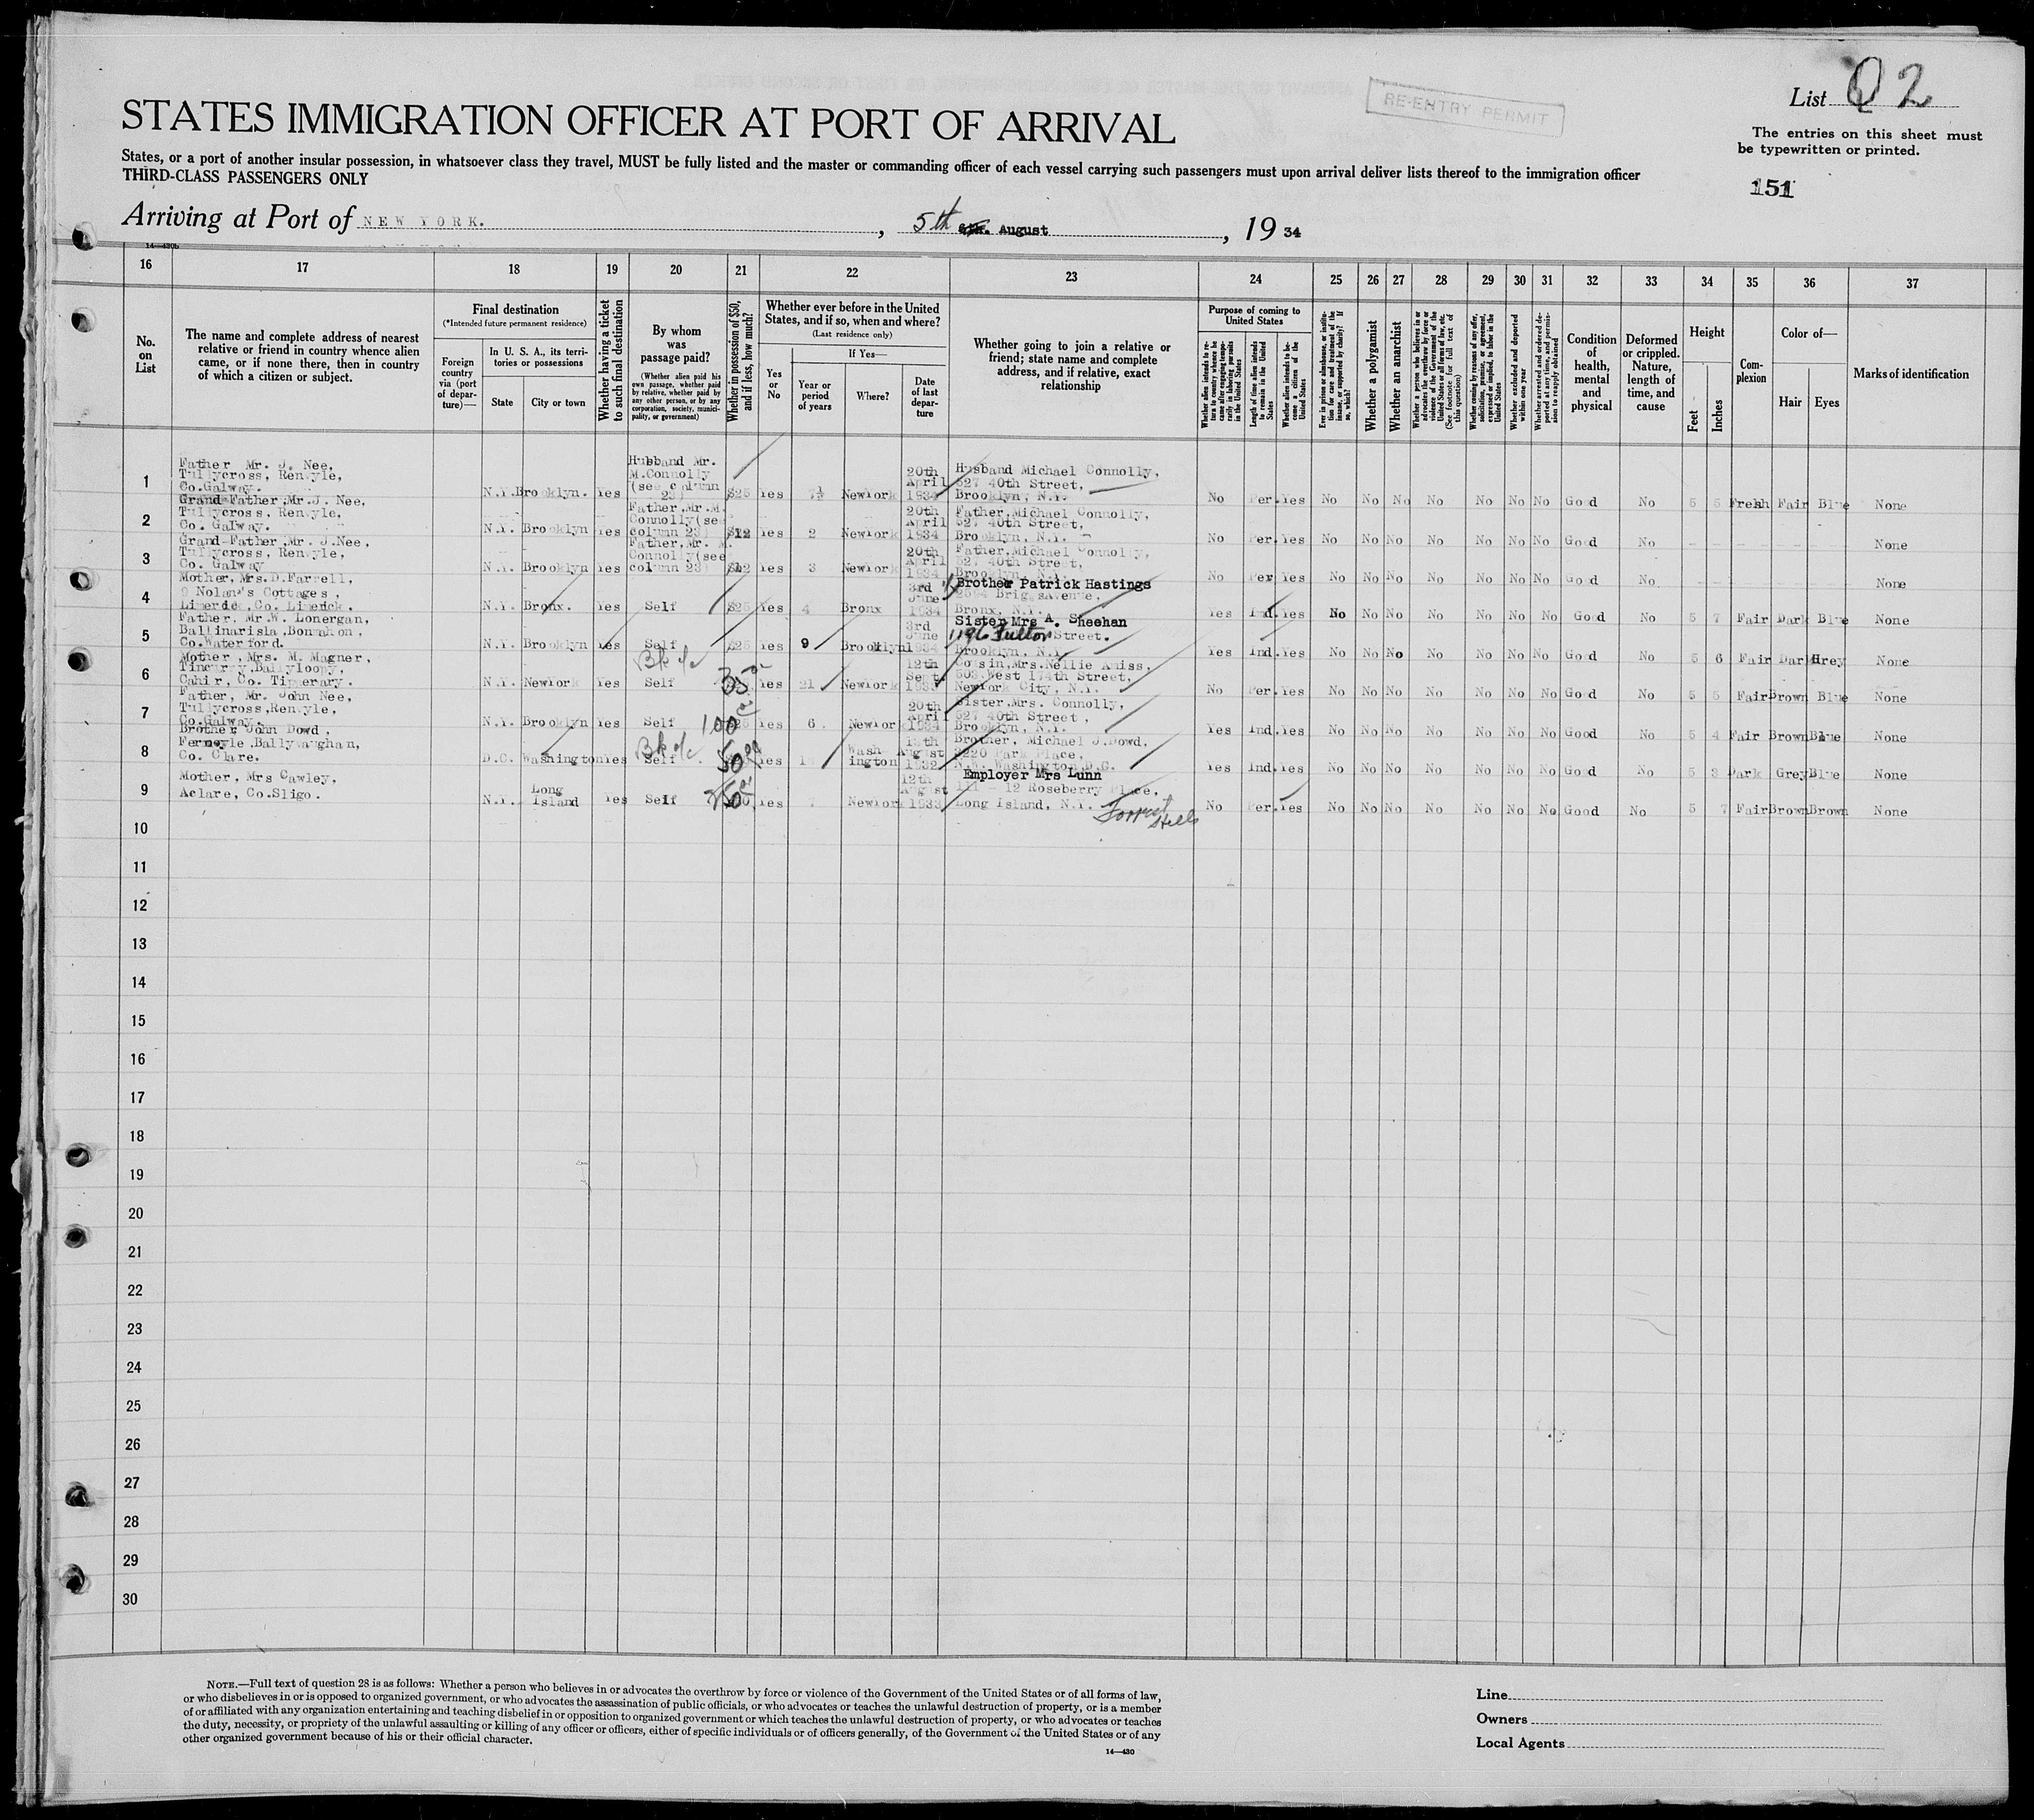 List Q 2
RE-ENTRY PERMIT
STATES IMMIGRATION OFFICER AT PORT OF ARRIVAL
The entries on this sheet must
be typewritten or printed.
States, or a port of another insular possession, in whatsoever class they travel, MUST be fully listed and the master or commanding officer of each vessel carrying such passengers must upon arrival deliver lists thereof to the immigration officer
THIRD-CLASS PASSENGERS ONLY
151
Arriving at Port of NEW YORK. , 5th August , 19 34
14—430b
16 17 18 19 20 21 22 23 24 25 26 27 28 29 30 31 32 33 34 35 36 37
No.
on
List
The name and complete address of nearest
relative or friend in country whence alien
came, or if none there, then in country
of which a citizen or subject.
Final destination
(*Intended future permanent residence)
Foreign
country
via (port
of depar-
ture)—
In U. S. A., its terri-
tories or possessions
State
City or town
Whether having a ticket
to such final destination
By whom
was
passage paid?
(Whether alien paid his
own passage, whether paid
by relative, whether paid by
any other person, or by any
corporation, society, munici-
pality, or government)
Whether in possession of $50,
and if less, how much?
Whether ever before in the United
States, and if so, when and where?
(Last residence only)
Yes
or
No
If Yes—
Year or
period
of years
Where?
Date
of last
depar-
ture
Whether going to join a relative or
friend; state name and complete
address, and if relative, exact
relationship
Purpose of coming to
United States
Whether alien intends to re-
turn to country whence he
came after engaging tempo-
rarily in laboring pursuits
in the United States
Length of time alien intends
to remain in the United
States
Whether alien intends to be-
come a citizen of the
United States
Ever in prison or almshouse, or institu-
tion for care and treatment of the
insane, or supported by charity? If
so, which?
Whether a polygamist
Whether an anarchist
Whether a person who believes in or
advocates the overthrow by force or
violence of the Government of the
United States or all forms of law, etc.
(See footnote for full text of
this question)
Whether coming by reason of any offer,
solicitation, promise, or agreement,
expressed or implied, to labor in the
United States
Whether excluded and deported
within one year
Whether arrested and ordered de-
ported at any time, and permis-
sion to reapply obtained
Condition
of
health,
mental
and
physical
Deformed
or crippled.
Nature,
length of
time, and
cause
Height
Feet
Inches
Com-
plexion
Color of—
Hair
Eyes
Marks of identification
1
Father Mr. J. Nee,
Tullycross, Renvyle,
Co.Galway.
N.Y. Brooklyn. Yes
Husband Mr.
M.Connolly
(see column
23)
$25 Yes 7½ NewYork
20th
April
1934
Husband Michael Connolly,
527 40th Street,
Brooklyn, N.Y.
No Per. Yes No No No No No No No Good No 5 5 Fresh Fair Blue None
2
Grand-Father,Mr.J. Nee,
Tullycross, Renvyle,
Co. Galway.
N.Y. Brooklyn Yes
Father,Mr.M.
Connolly(see
column 23)
$12 Yes 2 NewYork
20th
April
1934
Father,Michael Connolly,
527 40th Street,
Brooklyn, N.Y.
No Per. Yes No No No No No No No Good No - - - - - None
3
Grand-Father,Mr. J.Nee,
Tullycross, Renvyle,
Co. Galway
N.Y. Brooklyn Yes
Father,Mr. M.
Connolly(see
column 23)
$12 Yes 3 NewYork
20th
April
1934
Father,Michael Connolly,
527 40th Street,
Brooklyn, N.Y.
No Per Yes No No No No No No No Good No - - - - - None
4
Mother, Mrs.D.Farrell,
9 Nolan's Cottages,
Limerick, Co. Limerick.
N.Y. Bronx. Yes Self $25 Yes 4 Bronx
3rd
June
1934
Brother Patrick Hastings
2594 Briggs Avenue,
Bronx, N.Y.
Yes Ind. Yes No No No No No No No Good No 5 7 Fair Dark Blue None
5
Father, Mr.W. Lonergan,
Ballinarisla,Bonmahon,
Co.Waterford.
N.Y. Brooklyn Yes Self $25 Yes 9 Brooklyn
3rd
June
1934
Sister Mrs A. Sheehan
1196 Fulton Street.
Brooklyn, N.Y.
Yes Ind. Yes No No No No No No No Good No 5 6 Fair Dark Grey None
6
Mother, Mrs. M. Magner,
Tincurry,Ballylooby,
Cahir, Co. Tipperary.
N.Y. NewYork Yes Self Yes 21 NewYork
12th
Sept.
1933
Cousin,Mrs.Nellie Aniss,
503,West 174th Street,
NewYork City, N.Y.
No Per. Yes No No No No No No No Good No 5 5 Fair Brown Blue None
7
Father, Mr. John Nee,
Tullycross,Renvyle,
Co.Galway.
N.Y. Brooklyn Yes Self 100 Yes 6 NewYork
20th
April
1934
Sister,Mrs. Connolly,
527 40th Street,
Brooklyn, N.Y.
Yes Ind. Yes No No No No No No No Good No 5 4 Fair Brown Blue None
8
Brother John Dowd,
Fermoyle,Ballyvaughan,
Co. Clare.
D.C. Washington Yes Self 50 Yes Wash-
ington
August
1932
Brother, Michael J.Dowd,
2220 Park Place,
N.W. Washington D.C.
Yes Ind. Yes No No No No No No No Good No 5 8 Dark Grey Blue None
9
Mother, Mrs Cawley,
Aclare, Co.Sligo.
N.Y. Long
Island
Yes Self Yes 7 NewYork
12th
August
1933
Employer Mrs Lunn
111 - 12 Roseberry Place,
Long Island, N.Y.
Forrest
Hills
No Per. Yes No No No No No No No Good No 5 7 Fair Brown Brown None
10
11
12
13
14
15
16
17
18
19
20
21
22
23
24
25
26
27
28
29
30
NOTE.—Full text of question 28 is as follows: Whether a person who believes in or advocates the overthrow by force or violence of the Government of the United States or of all forms of law,
or who disbelieves in or is opposed to organized government, or who advocates the assassination of public officials, or who advocates or teaches the unlawful destruction of property, or is a member
of or affiliated with any organization entertaining and teaching disbelief in or opposition to organized government or which teaches the unlawful destruction of property, or who advocates or teaches
the duty, necessity, or propriety of the unlawful assaulting or killing of any officer or officers, either of specific individuals or of officers generally, of the Government of the United States or of any
other organized government because of his or their official character.
14—430
Line
Owners
Local Agents